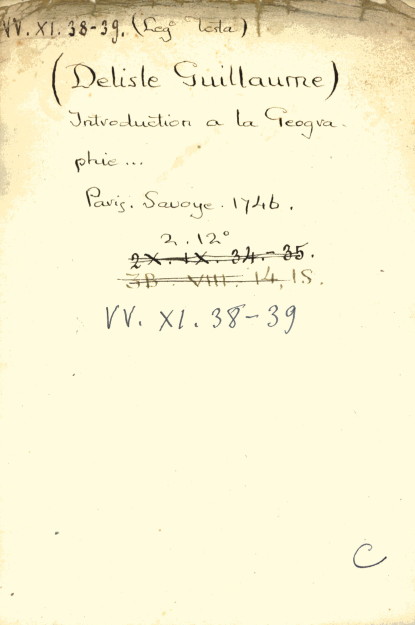 VV. XI. 38-39. (Leg° Testa)
(Delisle Guillaume)
Introduction a la Geogra-
phie...
Paris. Savoye. 1746.
2. 12°
2X. IX. 34.-35.
3B. VIII. 14, 15.
VV. XI. 38-39
C